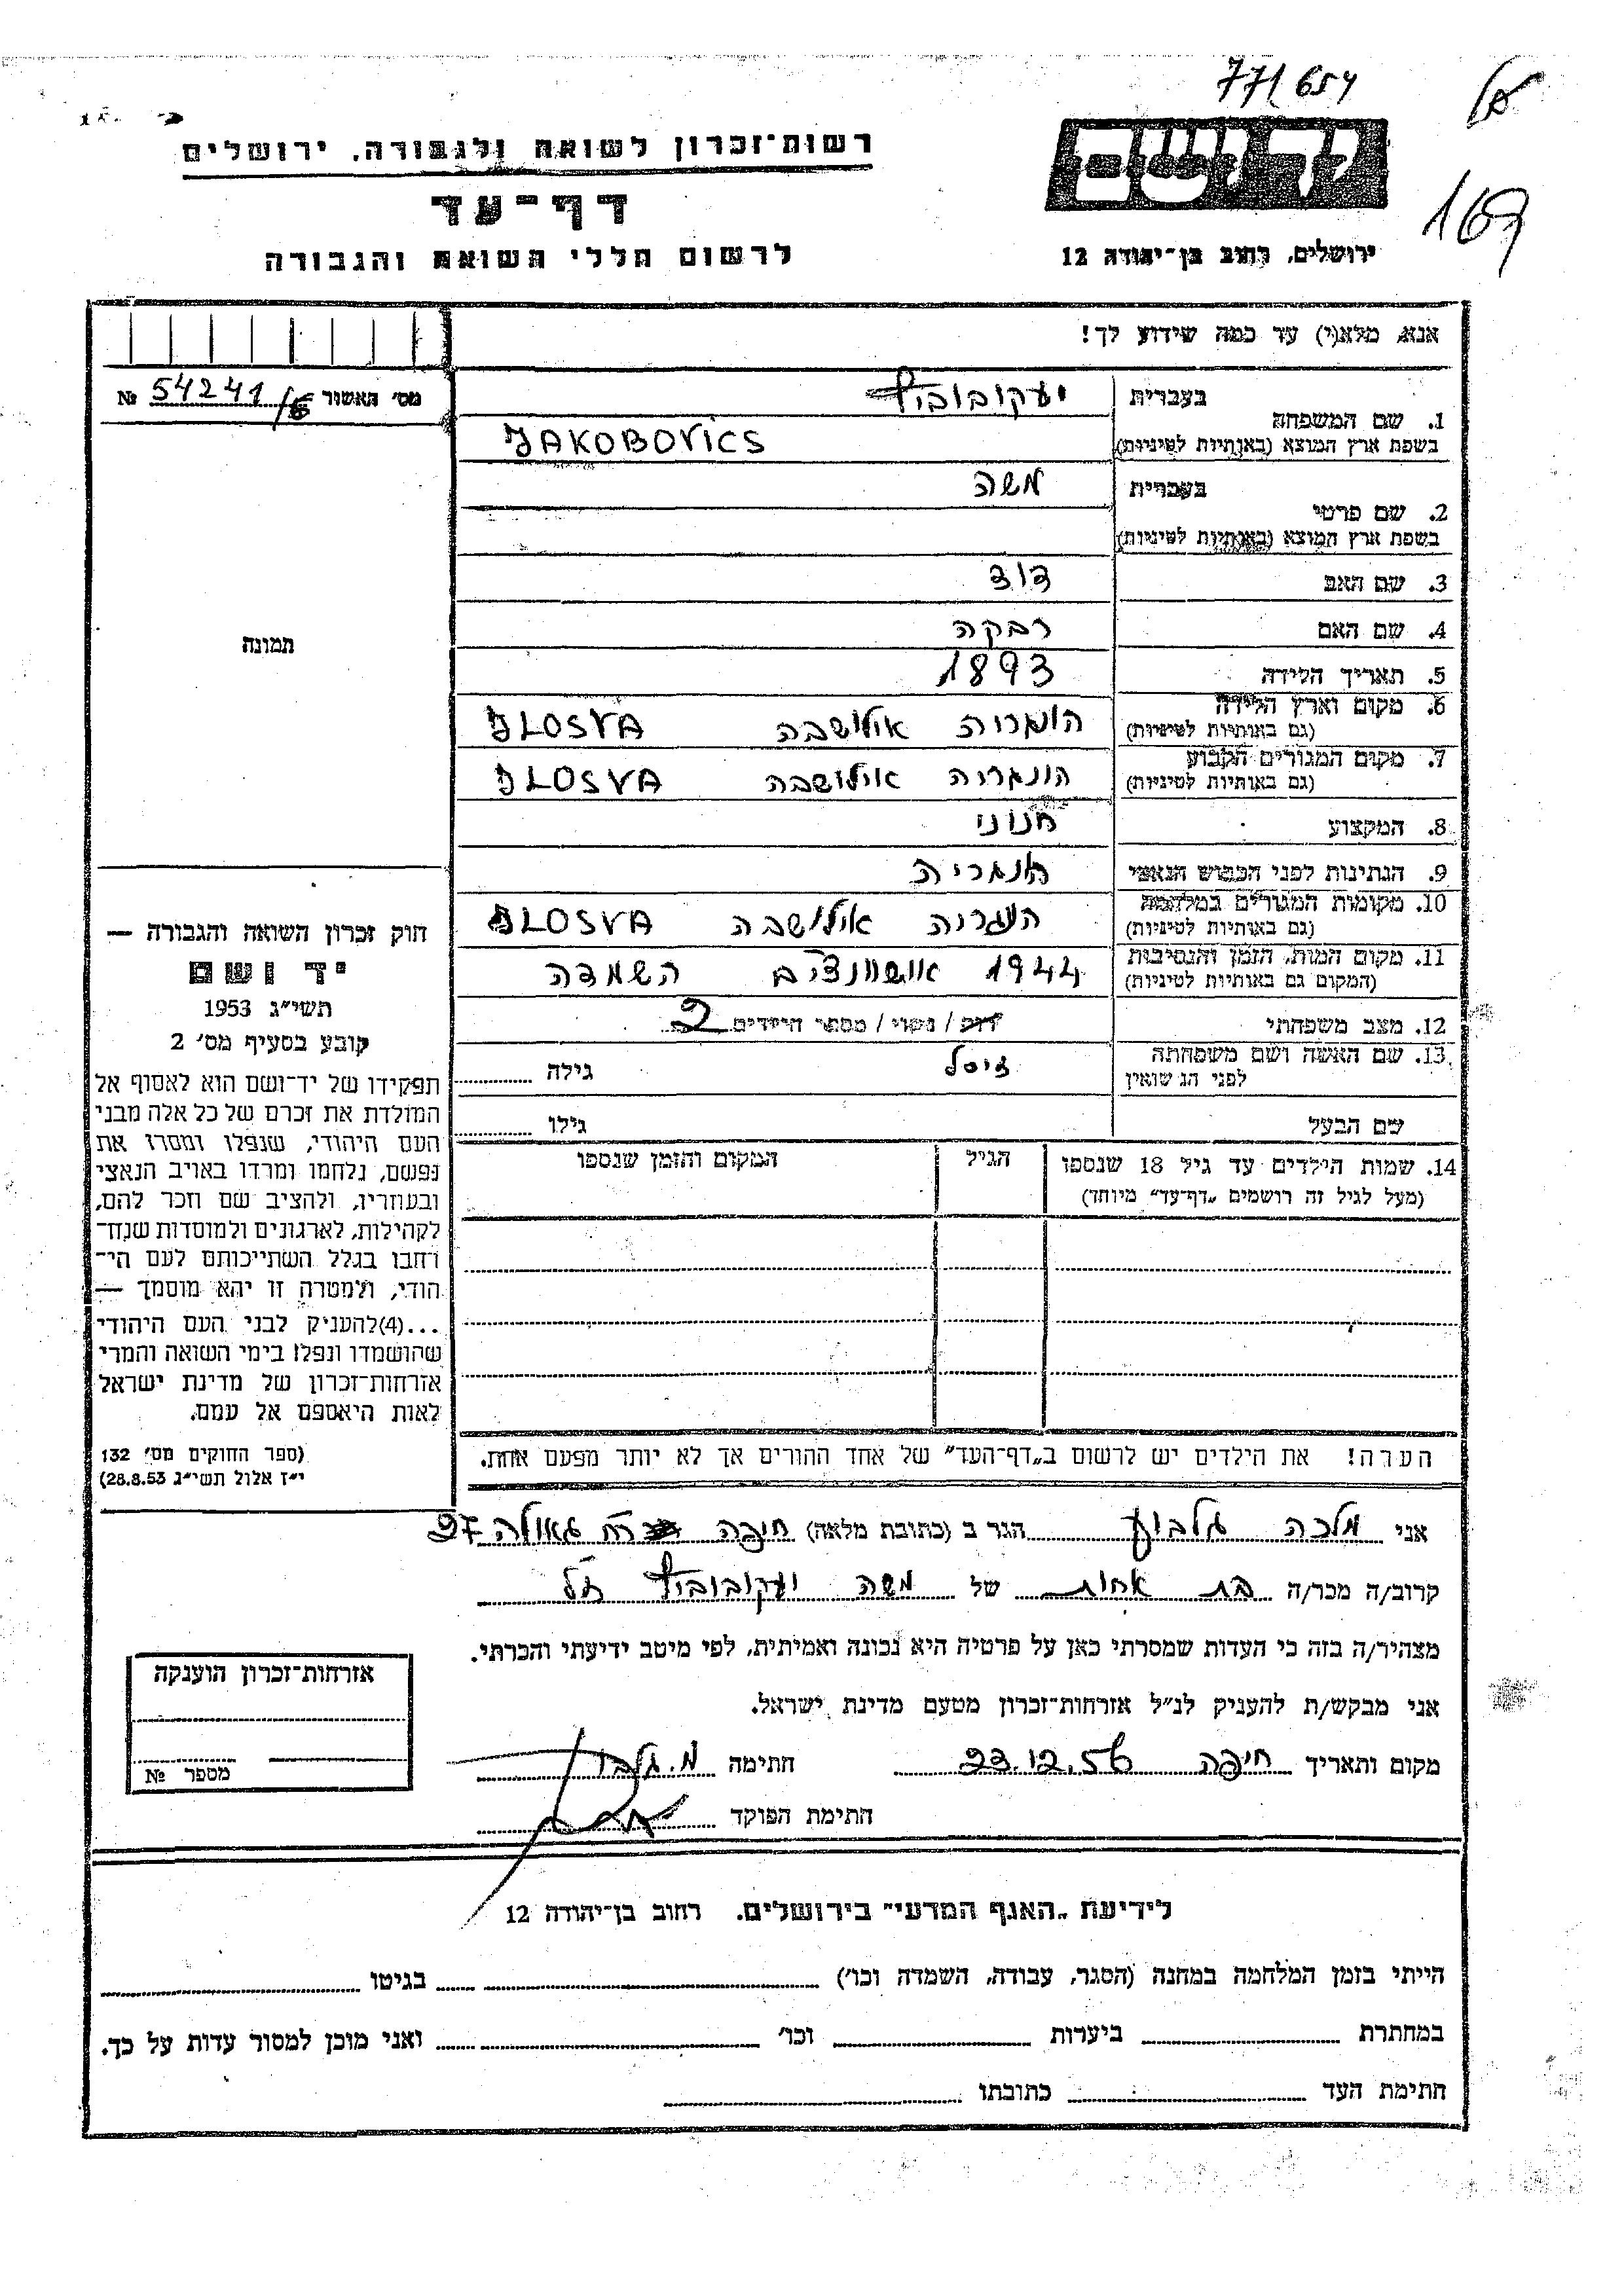 771654
169
יד ושם
רשות־זכרון לשואה ולגבורה, ירושלים
דף־עד
לרשום חללי השואה והגבורה
ירושלים, רחוב בן־יהודה 12
אנא, מלא(י) עד כמה שידוע לך!
מס׳ האשור 54241/6 №
1. שם המשפחה
בעברית יעקובוביץ
בשפת ארץ המוצא (באותיות לטיניות) JAKOBOVICS
2. שם פרטי
בעברית משה
בשפת ארץ המוצא (באותיות לטיניות)
3. שם האב דוד
4. שם האם רבקה
5. תאריך הלידה 1893
6. מקום וארץ הלידה הונגריה אילושבה JLOSVA
(גם באותיות לטיניות)
7. מקום המגורים הקבוע הונגריה אילושבה JLOSVA
(גם באותיות לטיניות)
8. המקצוע חנוני
9. הנתינות לפני הכבוש הנאצי הונגרית
10. מקומות המגורים במלחמה הונגריה אילושבה JLOSVA
(גם באותיות לטיניות)
11. מקום המות, הזמן והנסיבות 1944 אושוונצים השמדה
(המקום גם באותיות לטיניות)
12. מצב משפחתי רוק / נשוי / מספר הילדים 2
13. שם האשה ושם משפחתה זיסל גילה
לפני הנישואין
שם הבעל גילו
14. שמות הילדים עד גיל 18 שנספו הגיל המקום והזמן שנספו
(מעל לגיל זה רושמים „דף־עד״ מיוחד)
הערה! את הילדים יש לרשום ב„דף־העד״ של אחד ההורים אך לא יותר מפעם אחת.
תמונה
חוק זכרון השואה והגבורה —
יד ושם
תשי״ג 1953
קובע בסעיף מס׳ 2
תפקידו של יד־ושם הוא לאסוף אל
המולדת את זכרם של כל אלה מבני
העם היהודי, שנפלו ומסרו את
נפשם, נלחמו ומרדו באויב הנאצי
ובעוזריו, ולהציב שם וזכר להם,
לקהילות, לארגונים ולמוסדות שנח־
רבו בגלל השתייכותם לעם הי־
הודי, ולמטרה זו יהא מוסמך —
...(4)להעניק לבני העם היהודי
שהושמדו ונפלו בימי השואה והמרי
אזרחות־זכרון של מדינת ישראל
לאות היאספם אל עמם.
(ספר החוקים מס׳ 132
י״ז אלול תשי״ג 28.8.53)
אני מלכה גלבוע הגר ב (כתובת מלאה) חיפה רח גאולה 27
קרוב/ה מכר/ה בת אחות של משה יעקובוביץ ז״ל
מצהיר/ה בזה כי העדות שמסרתי כאן על פרטיה היא נכונה ואמיתית, לפי מיטב ידיעתי והכרתי.
אני מבקש/ת להעניק לנ״ל אזרחות־זכרון מטעם מדינת ישראל.
מקום ותאריך חיפה 23.12.56 חתימה מ. גלבוע
חתימת הפוקד
אזרחות־זכרון הוענקה
מספר №
לידיעת „האגף המדעי״ בירושלים. רחוב בן־יהודה 12
הייתי בזמן המלחמה במחנה (הסגר, עבודה, השמדה וכו׳) בגיטו
במחתרת ביערות וכו׳ ואני מוכן למסור עדות על כך.
חתימת העד כתובתו